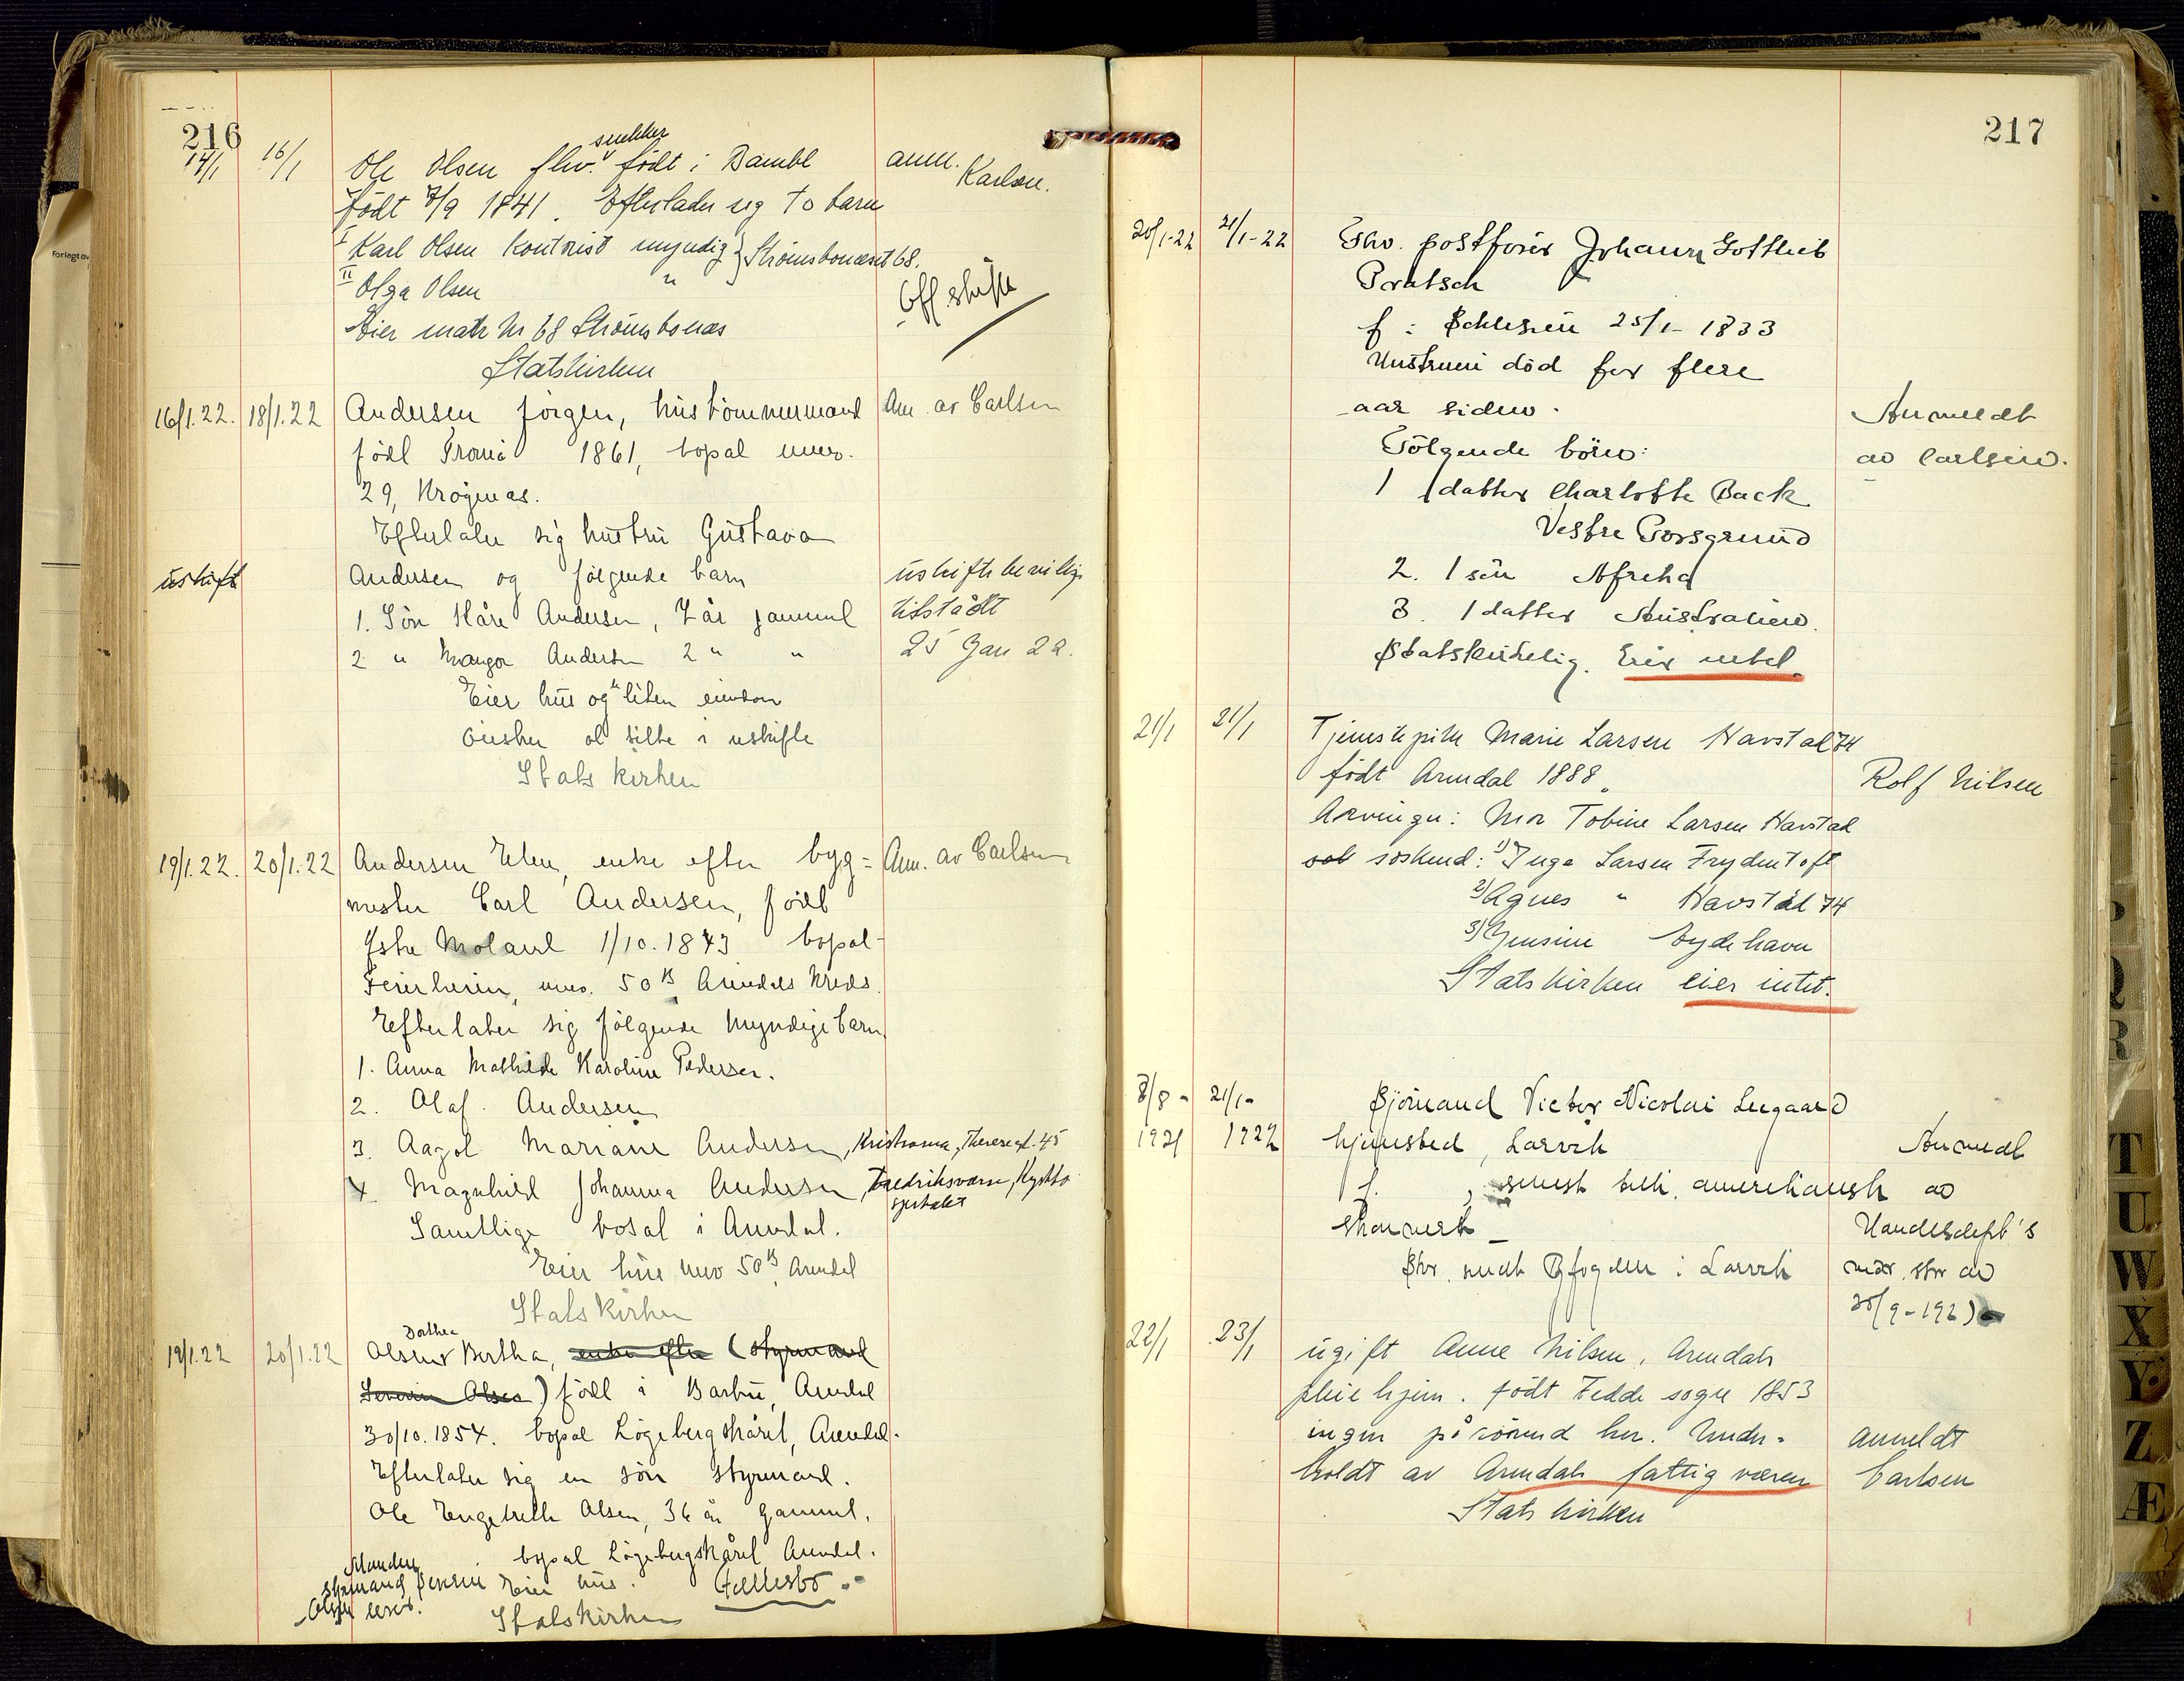 216
14/1 16/1 Ole Olsen fhv. snekker født i Bamble anm. Karlsen.
født 7/9 1841. Efterlader sig to barn
I Karl Olsen kontorist myndig } Strømsbonæset 68.
II Olga Olsen "
Off. skifte
Eier matr Nr 68 Strømsbonæs
Statskirken
16/1.22. 18/1.22 Andersen Jørgen, hustømmermand Anm. av Carlsen
født Tromø 1861, bopæl numro.
29, Krøgenæs.
Efterlater sig hustru Gustava
uskift Andersen og følgende barn uskiftebevilg.
1. Søn Kåre Andersen, 7 år gammel tilstådt
2 " Mangor Andersen 2 " " 25 Jan 22.
Eier hus og liten eiendom
ønsker at sitte i uskifte
Statskirken
19/1.22. 20/1.22 Andersen Elen, enke efter byg= Anm. av Carlsen
mester Carl Andersen, født
Østre Moland 1/10.1843 bopæl
Feierheien, numro. 50 B Arendals Kreds.
Efterlater sig følgende myndige barn
1. Anna Mathilde Karoline Pedersen.
2. Olaf. Andersen
3. Aagot Mariane Andersen, Kristiania, Theresesgt. 45
4. Magnhild Johanna Andersen, Fredriksværn, Kysthospitalet
Samtlige bosat i Arendal.
Eier hus numro 50 B Arendal
Statskirken
19/1.22 20/1.22 Olsen Dorthea Bertha, enke efter (styrmand
Severin Olsen) født i Barbu, Arendal
30/10.1854. bopæl Løgebergskåret, Arendal.
Efterlater sig en søn styrmand.
Ole Engebreth Olsen, 36 år gammel,
bopæl Løgebergskåret Arendal.
Manden styrmand Severin Olsen lever.
Eier hus. Fællesbo
Statskirken
217
20/1-22 21/1-22 Fhv. postfører Johann Gottlieb
Pratsch
f: Schlesien 25/1-1833
Hustruen død for flere
aar siden. Anmeldt
Følgende børn: av Carlsen.
1 1 datter Charlotte Back
Vestre Porsgrund
2. 1 søn Afrika
3. 1 datter Australien.
Statskirkelig. Eier intet.
21/1 21/1 Tjenestepike Marie Larsen Havstad 74
født Arendal 1888. Rolf Nilsen
Arvinger: Mor Tobine Larsen Havstad
søskend: 1) Inga Larsen Frydentoft
2) Agnes " Havstad 74
3) Jensine Eydehavn
Statskirken eier intet.
3/8 - 21/1 - Sjømand Victor Nicolai Leegaard
1921 1922 hjemsted, Larvik Anmeldt
f. , senest amerikansk av
Handelsdept's
Skr. sendt Byfogden i Larvik skr av
22/1 23/1 ugift Anne Nilsen, Arendals
pleiehjem. født Fedde sogn 1853
ingen pårørend her. Under- anmeldt
holdt av Arendals fattigvæsen Carlsen
Statskirken
P
Q
R
T
U
W
X
Y
Z
Æ